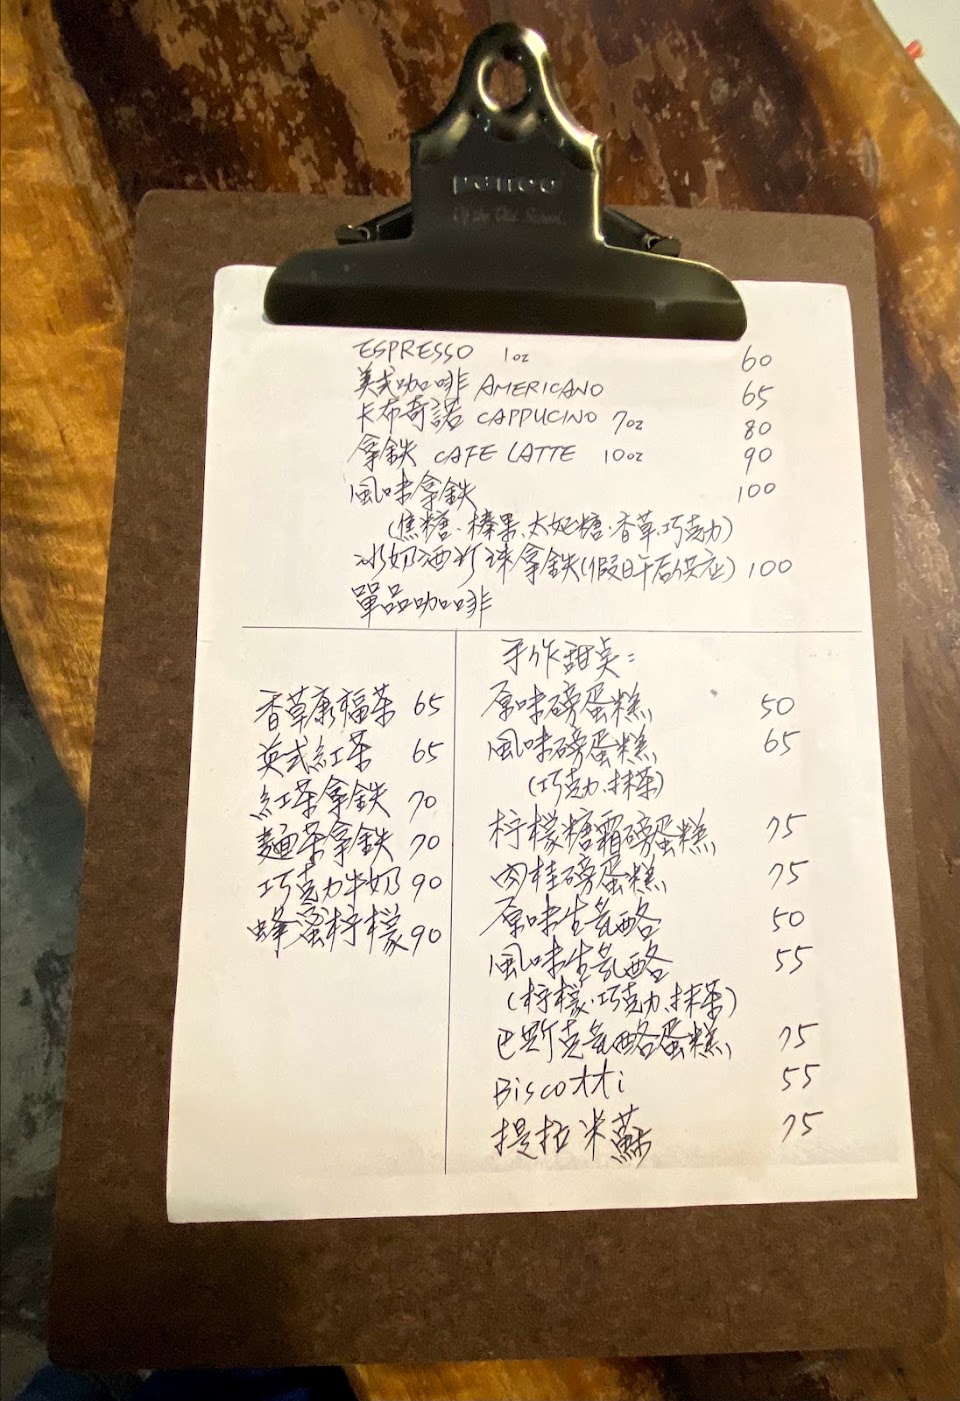 penco
Of the Old School
ESPRESSO 1oz 60
美式咖啡 AMERICANO 65
卡布奇諾 CAPPUCINO 7oz 80
拿鉄 CAFE LATTE 10oz 90
風味拿鉄 100
(焦糖、榛果、太妃糖、香草、巧克力)
冰奶酒珍珠拿鉄(假日午后供应) 100
單品咖啡
香草康福茶 65
英式紅茶 65
紅茶拿鉄 70
麵茶拿鉄 70
巧克力牛奶 90
蜂蜜柠檬 90
手作甜点:
原味磅蛋糕 50
風味磅蛋糕 65
(巧克力、抹茶)
柠檬糖霜磅蛋糕 75
肉桂磅蛋糕 75
原味生乳酪 50
風味生乳酪 55
(柠檬、巧克力、抹茶)
巴斯克乳酪蛋糕 75
Biscotti 55
提拉米蘇 75